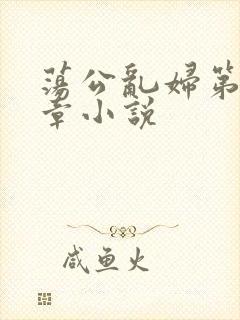 蕩公亂婦第
章小説
咸鱼火